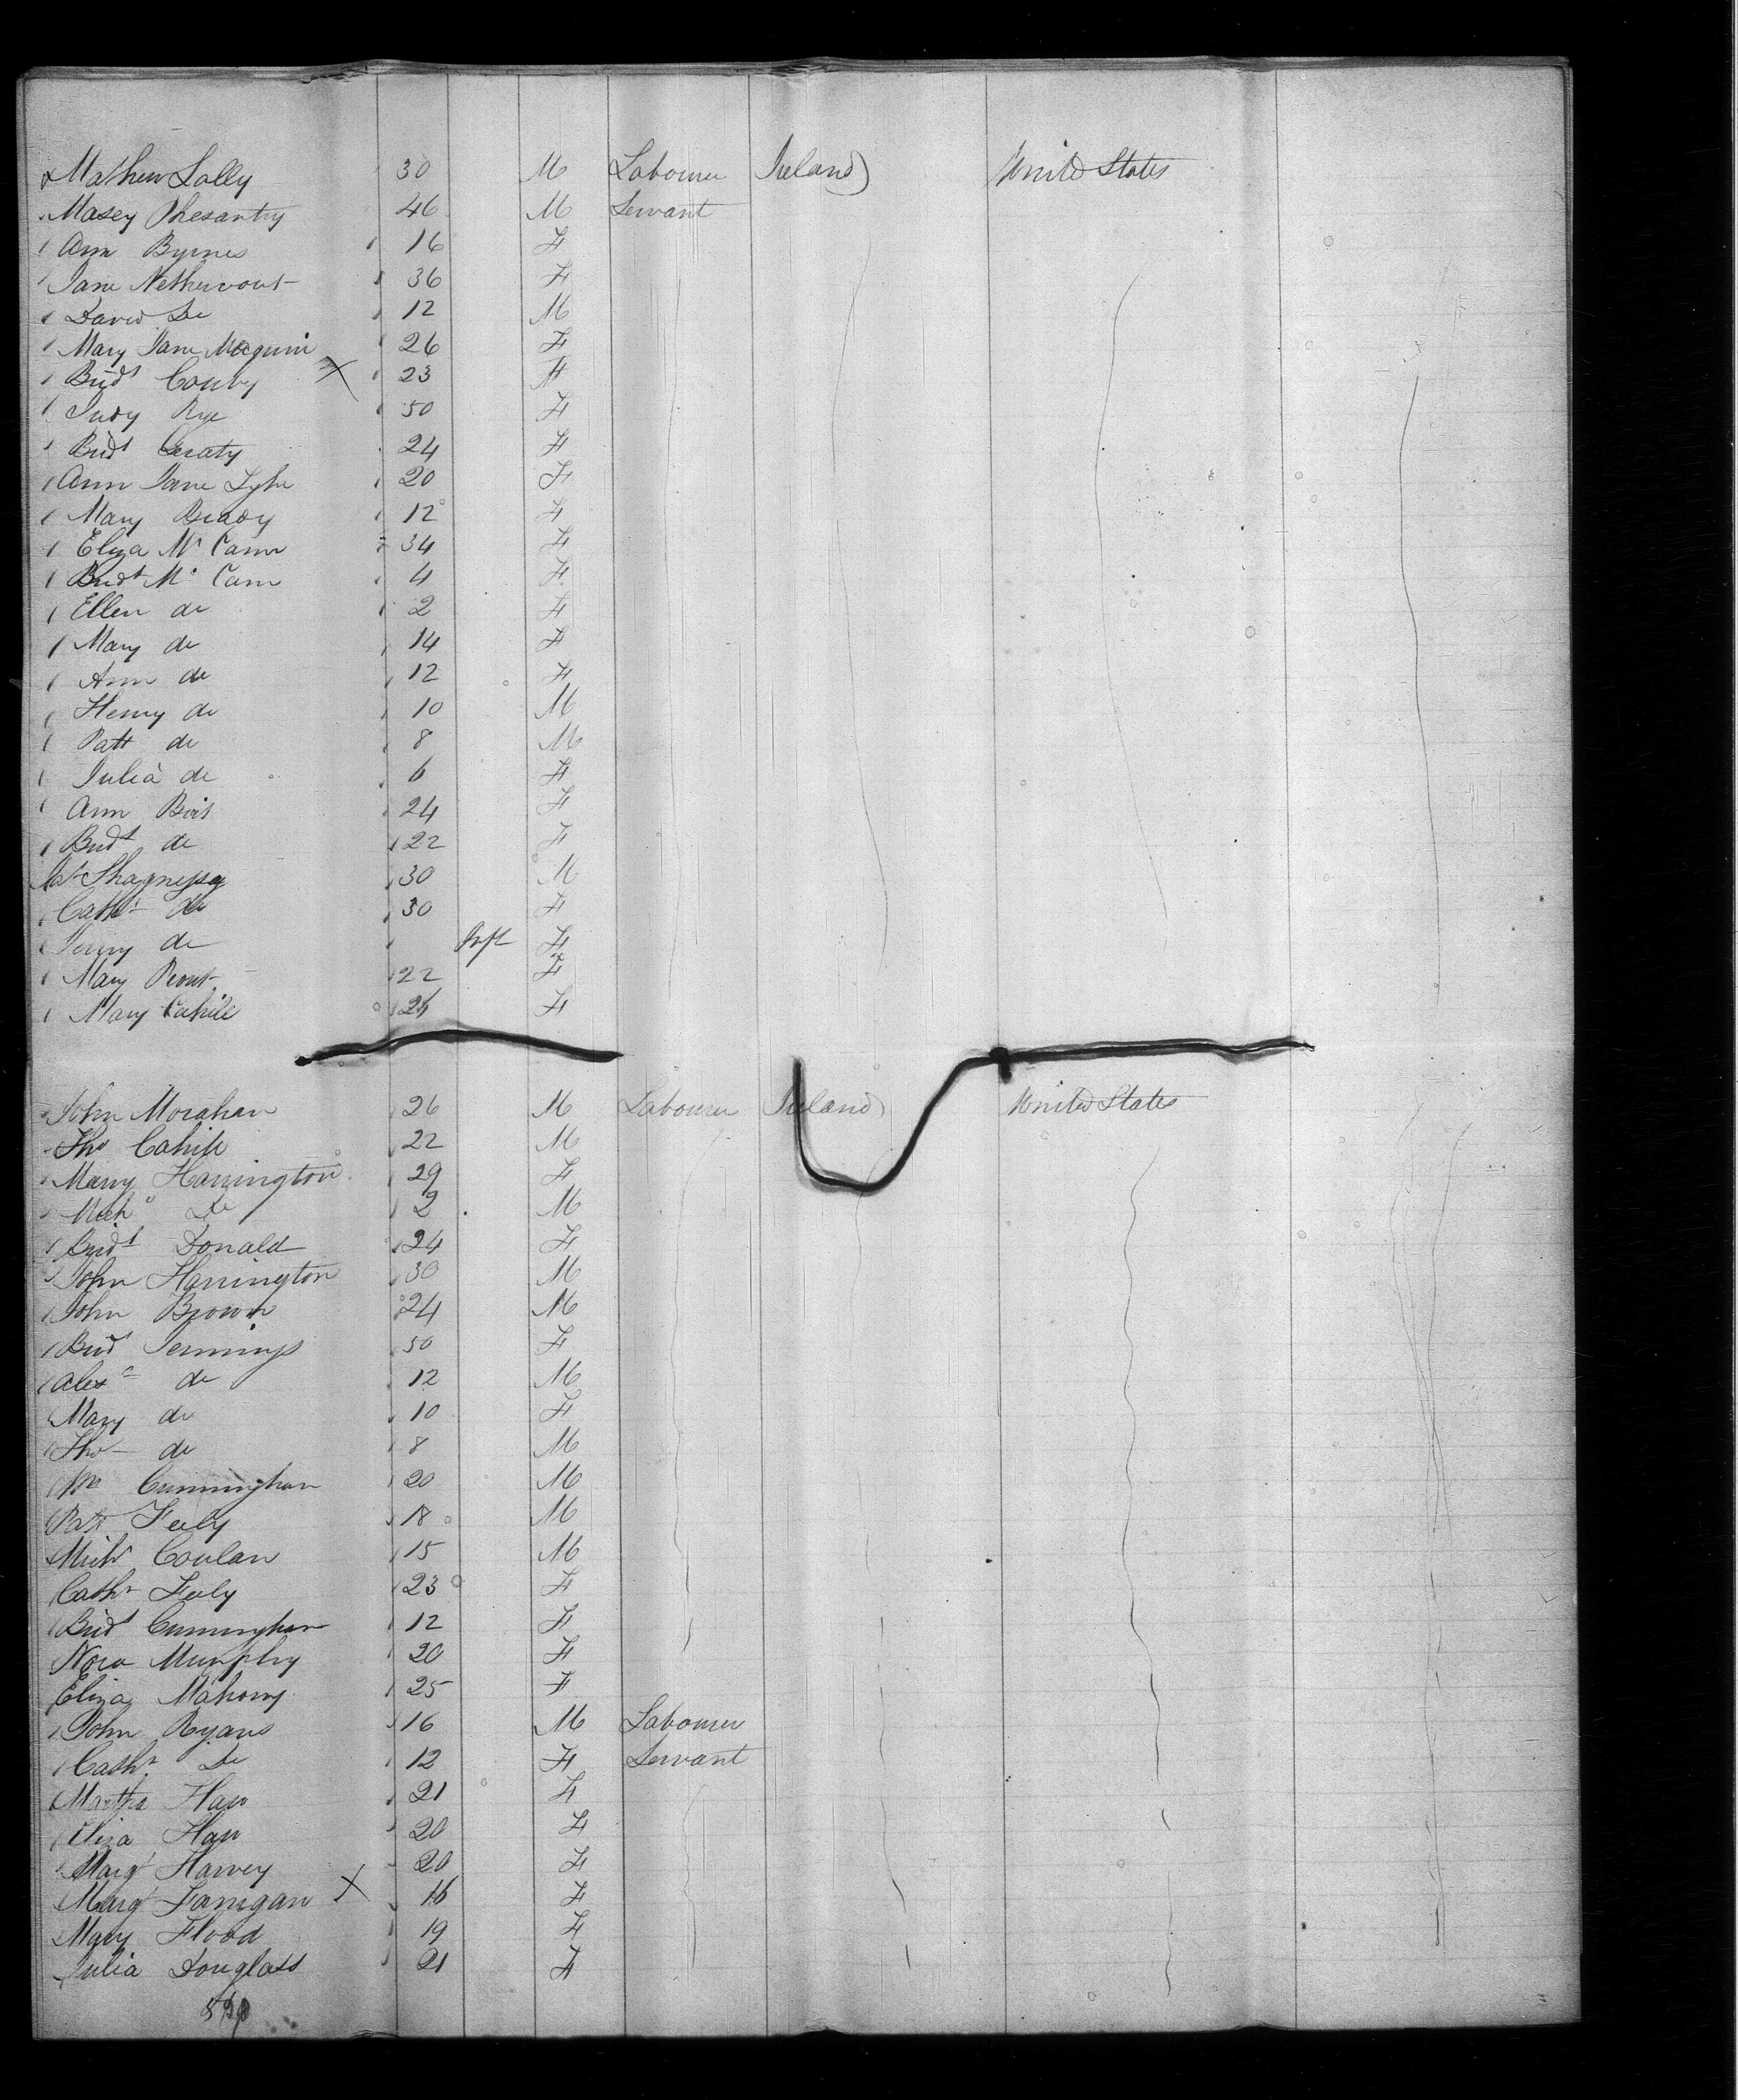 Mathew Lally 30 M Labourer Ireland United States
Masey Phesantry 46 M Servant
Ann Byrnes 16 F
Jane Nethervout 36 F
David Do 12 M
Mary Jane Mcguin 26 F
Bridt Conby X 23 F
Judy Rye 50 F
Bridt Geraty 24 F
Ann Jane Lyhe 20 F
Mary Brady 12 F
Eliza Mc Cann 34 F
Bridt Mc Cann 4 F
Ellen do 2 F
Mary do 14 F
Ann do 12 F
Henry do 10 M
Patt do 8 M
Julia do 6 F
Ann Bois 24 F
Bridt do 22 F
Pat Shagnessy 30 M
Cathe do 30 F
Jenny do Inft F
Mary Prout 22 F
Mary Cahile 24 F
John Morahan 26 M Labourer Ireland United States
Tho Cahill 22 M
Mary Harrington 29 F
Michl Do 2 M
Bridt Donald 24 F
John Harrington 30 M
John Brown 24 M
Brid Jennings 50 F
Alexr do 12 M
Mary do 10 F
Tho do 8 M
Wm Cunningham 20 M
Pat Feely 18 M
Michl Conlan 15 M
Cathr Feely 23 F
Bridt Cunningham 12 F
Nora Murphy 20 F
Eliza Mahony 25 F
John Ryans 16 M Labourer
Cathr Do 12 F Servant
Martha Haw 21 F
Eliza Haw 20 F
Margt Harvey 20 F
Margt Fanigan X 16 F
Mary Flood 19 F
Julia Douglass 21 F